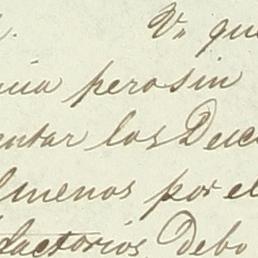 V. que
cia pero sin
entar los Duc
lmenos por el
dactorios debo